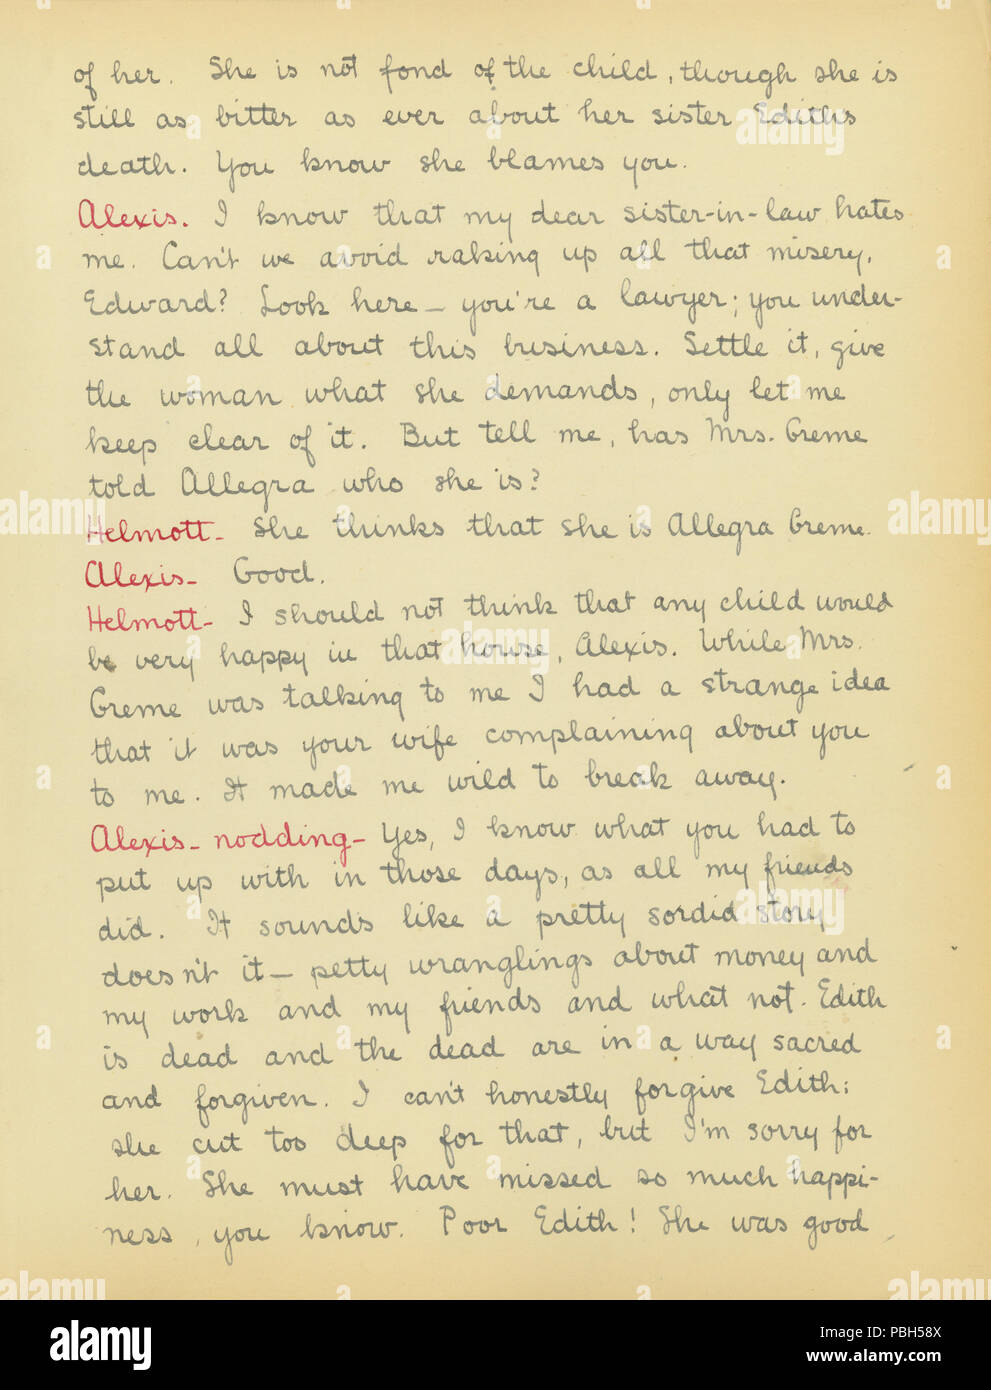 of her. She is not fond of the child, though she is
still as bitter as ever about her sister Ediths
death. You know she blames you.
Alexis. I know that my dear sister-in-law hates
me. Can't we avoid raking up all that misery,
Edward? Look here – you're a lawyer; you under-
stand all about this business. Settle it, give
the woman what she demands, only let me
keep clear of it. But tell me, has Mrs. Creme
told Allegra who she is?
Helmott – She thinks that she is Allegra Creme.
Alexis – Good.
Helmott – I should not think that any child would
be very happy in that house, Alexis. While Mrs.
Creme was talking to me I had a strange idea
that it was your wife complaining about you
to me. It made me wild to break away.
Alexis – nodding – Yes, I know what you had to
put up with in those days, as all my friends
did. It sounds like a pretty sordid story
doesn't it – petty wranglings about money and
my work and my friends and what not. Edith
is dead and the dead are in a way sacred
and forgiven. I can't honestly forgive Edith;
she cut too deep for that, but I'm sorry for
her. She must have missed so much happi-
ness, you know. Poor Edith! She was good
alamy
Image ID: PBH58X
www.alamy.com